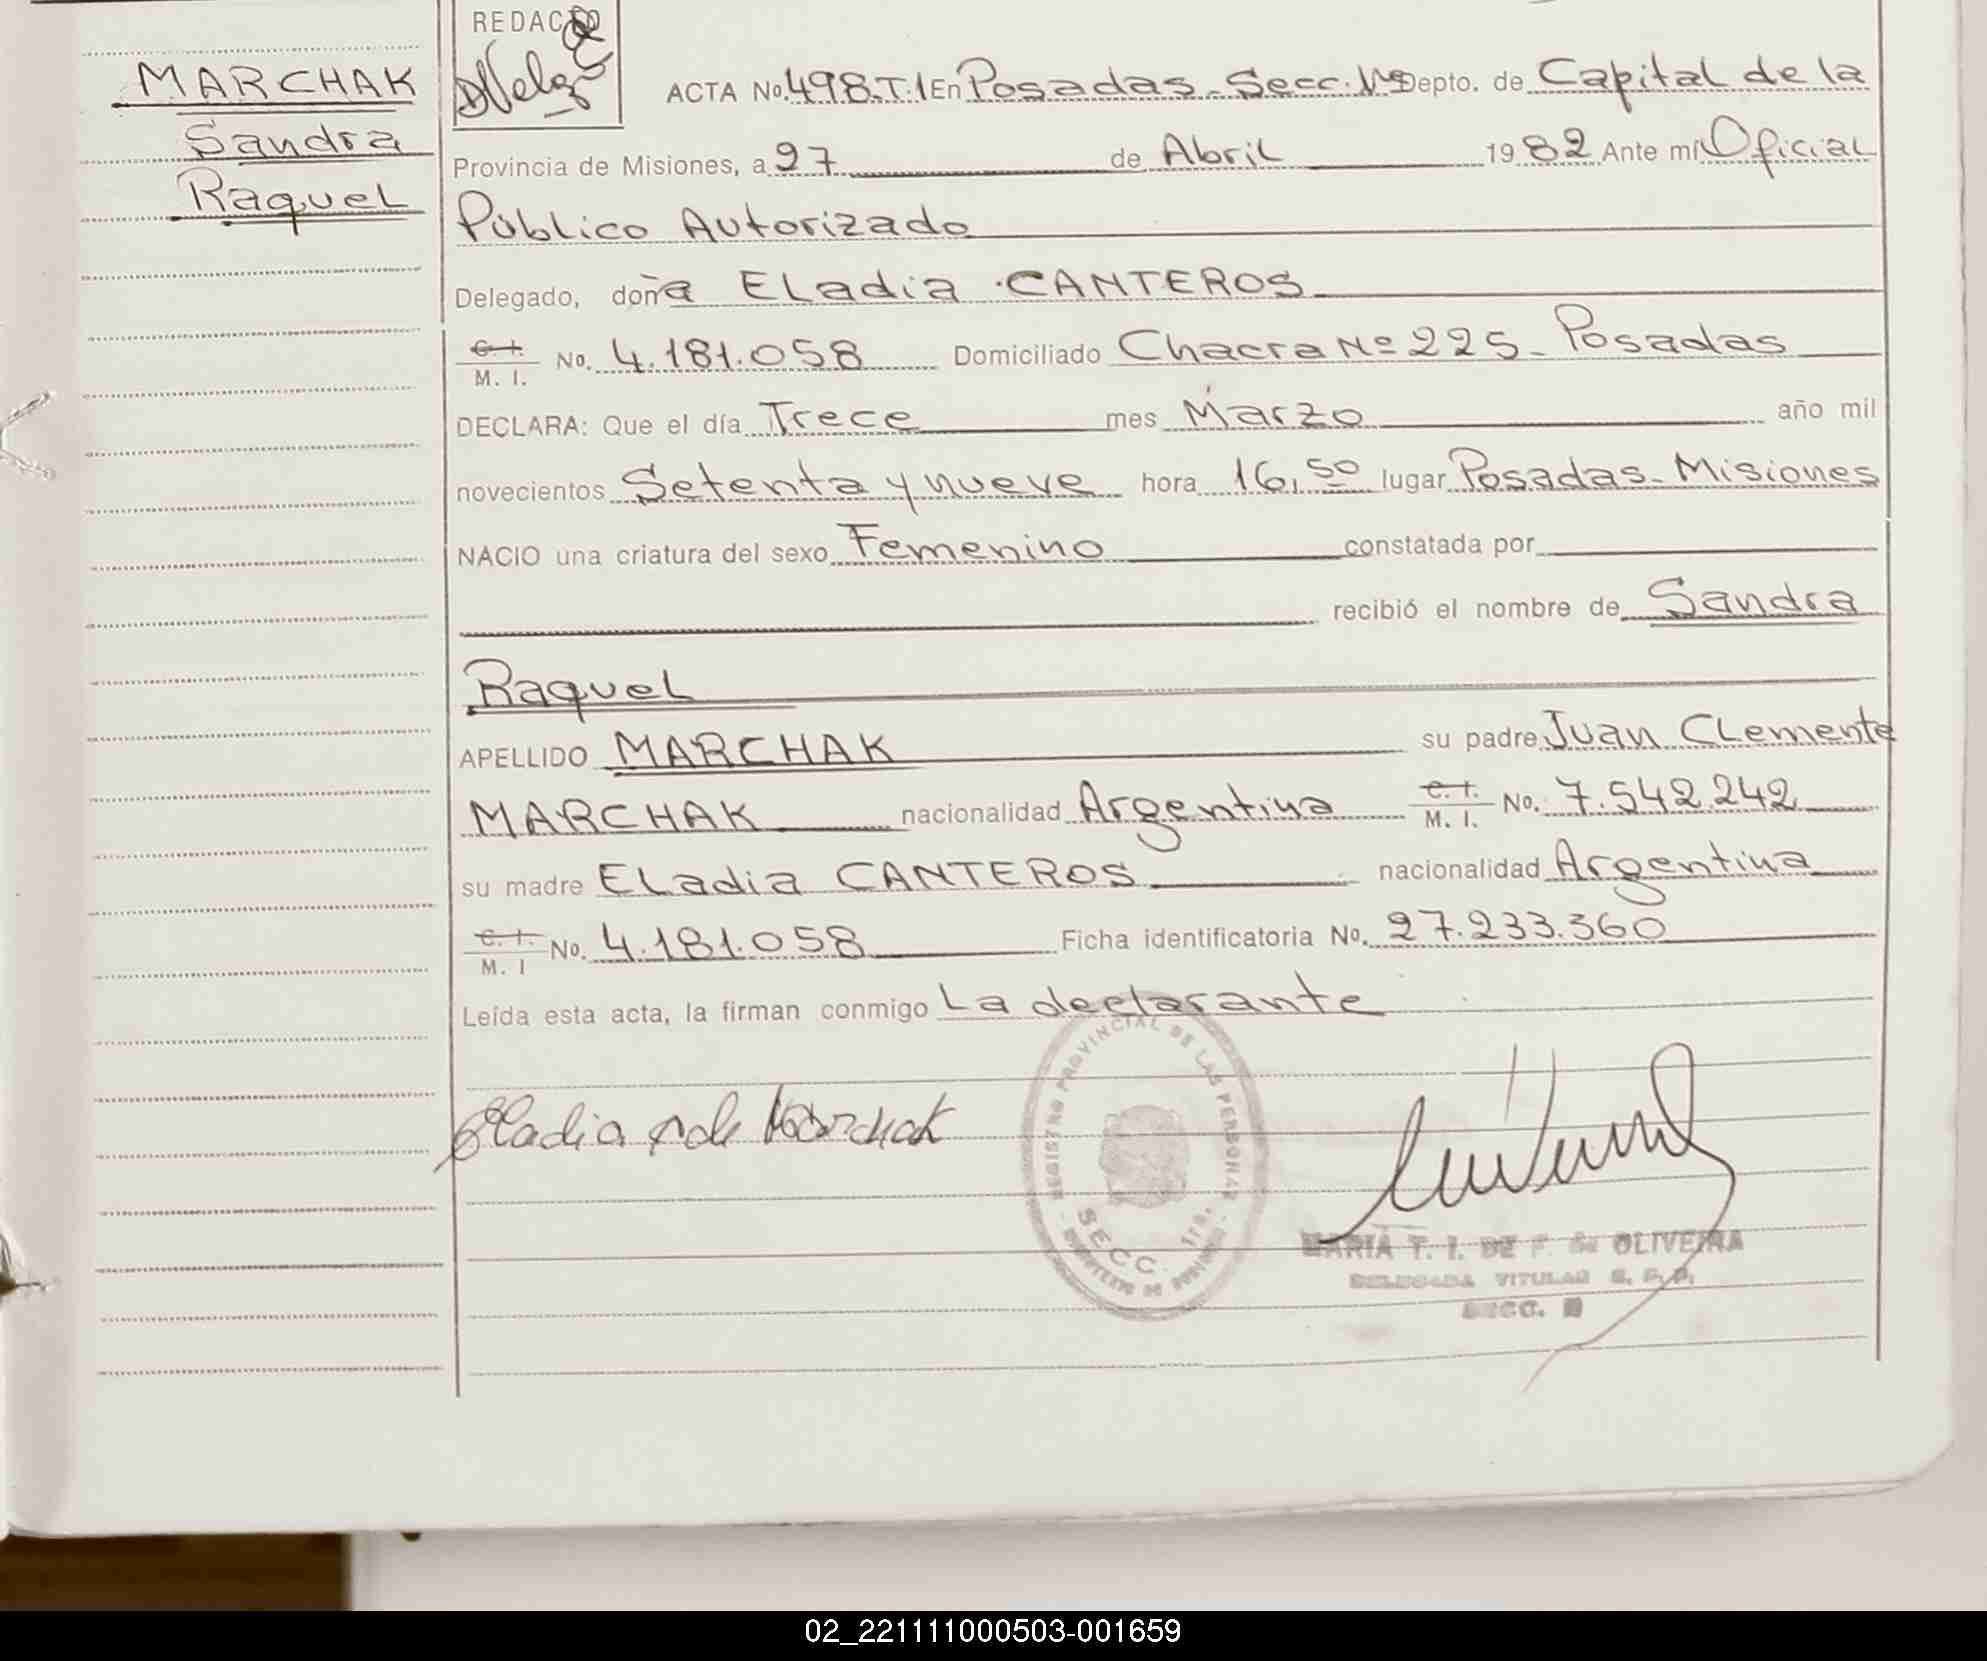 REDACTO
MARCHAK
Sandra
Raquel
ACTA No. 498.T.1 En Posadas - Secc. 1ª Depto. de Capital de la
Provincia de Misiones, a 27 de Abril 1982 Ante mí Oficial
Público Autorizado
Delegado, doña ELadia CANTEROS
C. I.
M. I. No. 4.181.058 Domiciliado Chacra Nº 225 - Posadas
DECLARA: Que el día Trece mes Marzo año mil
novecientos Setenta y nueve hora 16,50 lugar Posadas - Misiones
NACIO una criatura del sexo Femenino constatada por
recibió el nombre de Sandra
Raquel
APELLIDO MARCHAK su padre Juan CLemente
MARCHAK nacionalidad Argentina C. I. M. I. No. 7.542.242
su madre ELadia CANTEROS nacionalidad Argentina
C. I.
M. I No. 4.181.058 Ficha identificatoria No. 27.233.360
Leída esta acta, la firman conmigo La declarante
REGISTRO PROVINCIAL DE LAS PERSONAS
SECC. 1ra.
Eladia de Marchak
MARIA T. I. DE F. de OLIVEIRA
DELEGADA TITULAR R. P. P.
SECC.
02_221111000503-001659